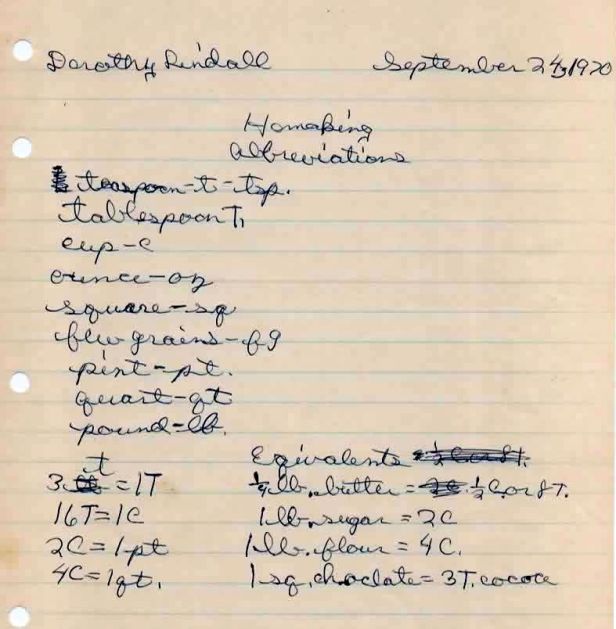 Dorothy Lindall September 24, 1970
Homaking
abbreviations
teaspoon-t-tsp.
tablespoon T,
cup-c
ounce-oz
square-sq
few grains-fg
pint-pt.
quart-qt
pound-lb.
Equivalents
3 t =1T ¼lb. butter = ½C. or 8T.
16T=1C 1 lb. sugar = 2C
2C=1pt 1 lb. flour = 4C.
4C=1qt. 1 sq. choclate= 3T. cocoa